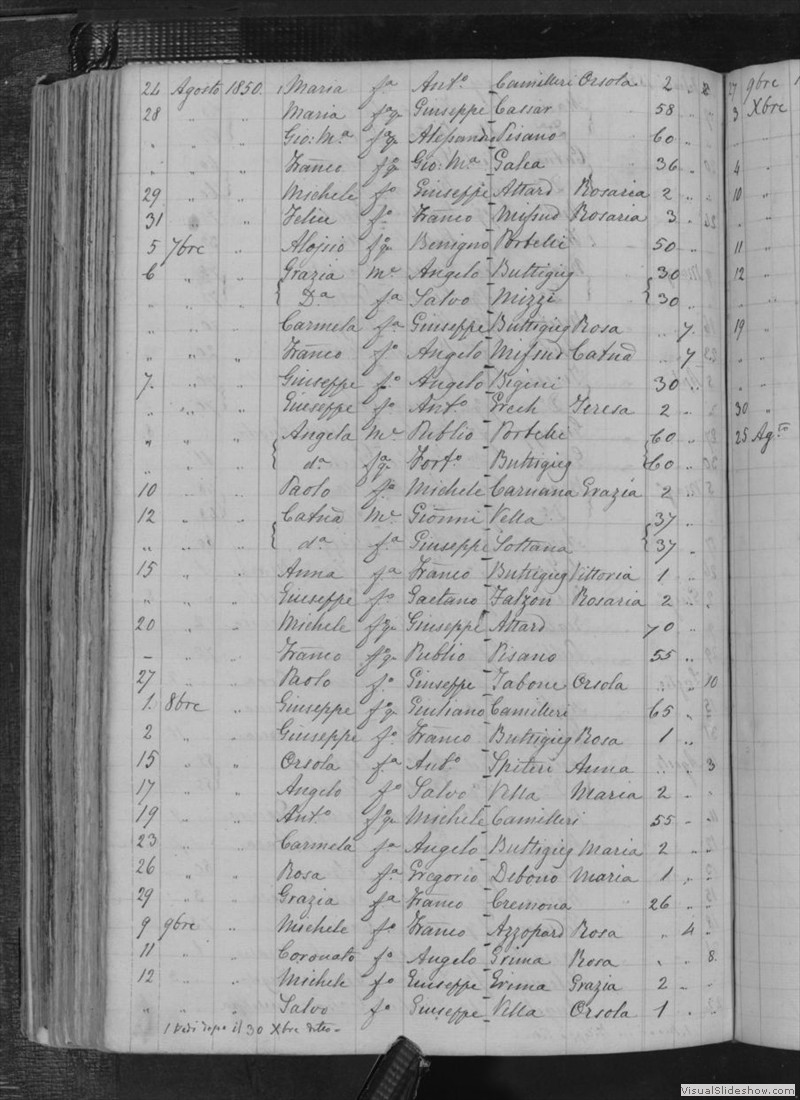 24 Agosto 1850. Maria fa Anto Camilleri Orsola 2 „ 27 9bre
28 „ „ Maria faq Giuseppe Cassar 58 „ 3 Xbre
„ „ „ Gio: Ma Pisano 60 „
„ „ „ Franco foq Gio: Ma Galea 36 „ 4 „
29 „ „ Michele fo Giuseppe Attard Rosaria 2 „ 10 „
31 „ „ Felice fo Franco Mifsud Rosaria 3 „
5 7bre „ Aloisio foq Benigno Portelli 50 „ 11 „
6 „ „ Grazia Me Angelo Buttigieg 30 12 „
Da fa Salvo Mizzi 30 „
„ „ „ Carmela fa Giuseppe Buttigieg Rosa „ 7 „ 19 „
„ „ „ Franco fo Angelo Mifsud Catna „ 7
7 „ „ Giuseppe fo Angelo Bigini 30 „
„ „ „ Giuseppe fo Anto Grech Teresa 2 „ 30 „
„ „ „ Angela Me Publio Portelli 60 „ 25 Agto
„ „ „ da faq Forto Buttigieg 60 „
10 „ „ Paolo Michele Caruana Grazia 2 „
12 „ „ Catna Me Gionni Vella 37 „
„ „ „ da fa Giuseppe Soltana 37 „
15 „ „ Anna fa Franco Buttigieg Vittoria 1 „
„ „ „ Giuseppe fo Gaetano Falzon Rosaria 2 „
20 „ „ Michele foq Giuseppe Attard 70 „
„ „ Franco foq Publio Pisano 55 „
27 „ „ Paolo fo Giuseppe Tabone Orsola „ „ 10
1 8bre „ Giuseppe foq Giuliano Camilleri 65 „
2 „ „ Giuseppe fo Franco Buttigieg Rosa 1 „
15 „ „ Orsola fa Anto Spiteri Anna „ „ 3
17 „ „ Angelo fo Salvo Vella Maria 2 „
19 „ „ Anto foq Michele Camilleri 55 „
23 „ „ Carmela fa Angelo Buttigieg Maria 2 „
26 „ „ Rosa fa Gregorio Debono Maria 1 „
29 „ „ Grazia fa Franco Cremona 26 „
9 9bre „ Michele fo Franco Azzopard Rosa „ 4 „
11 „ „ Coronato fo Angelo Grima Rosa „ „ 8
12 „ „ Michele fo Giuseppe Grima Grazia 2 „
„ „ „ Salvo fo Giuseppe Vella Orsola 1 „
1 Vedi dopo il 30 Xbre
VisualSlideshow.com